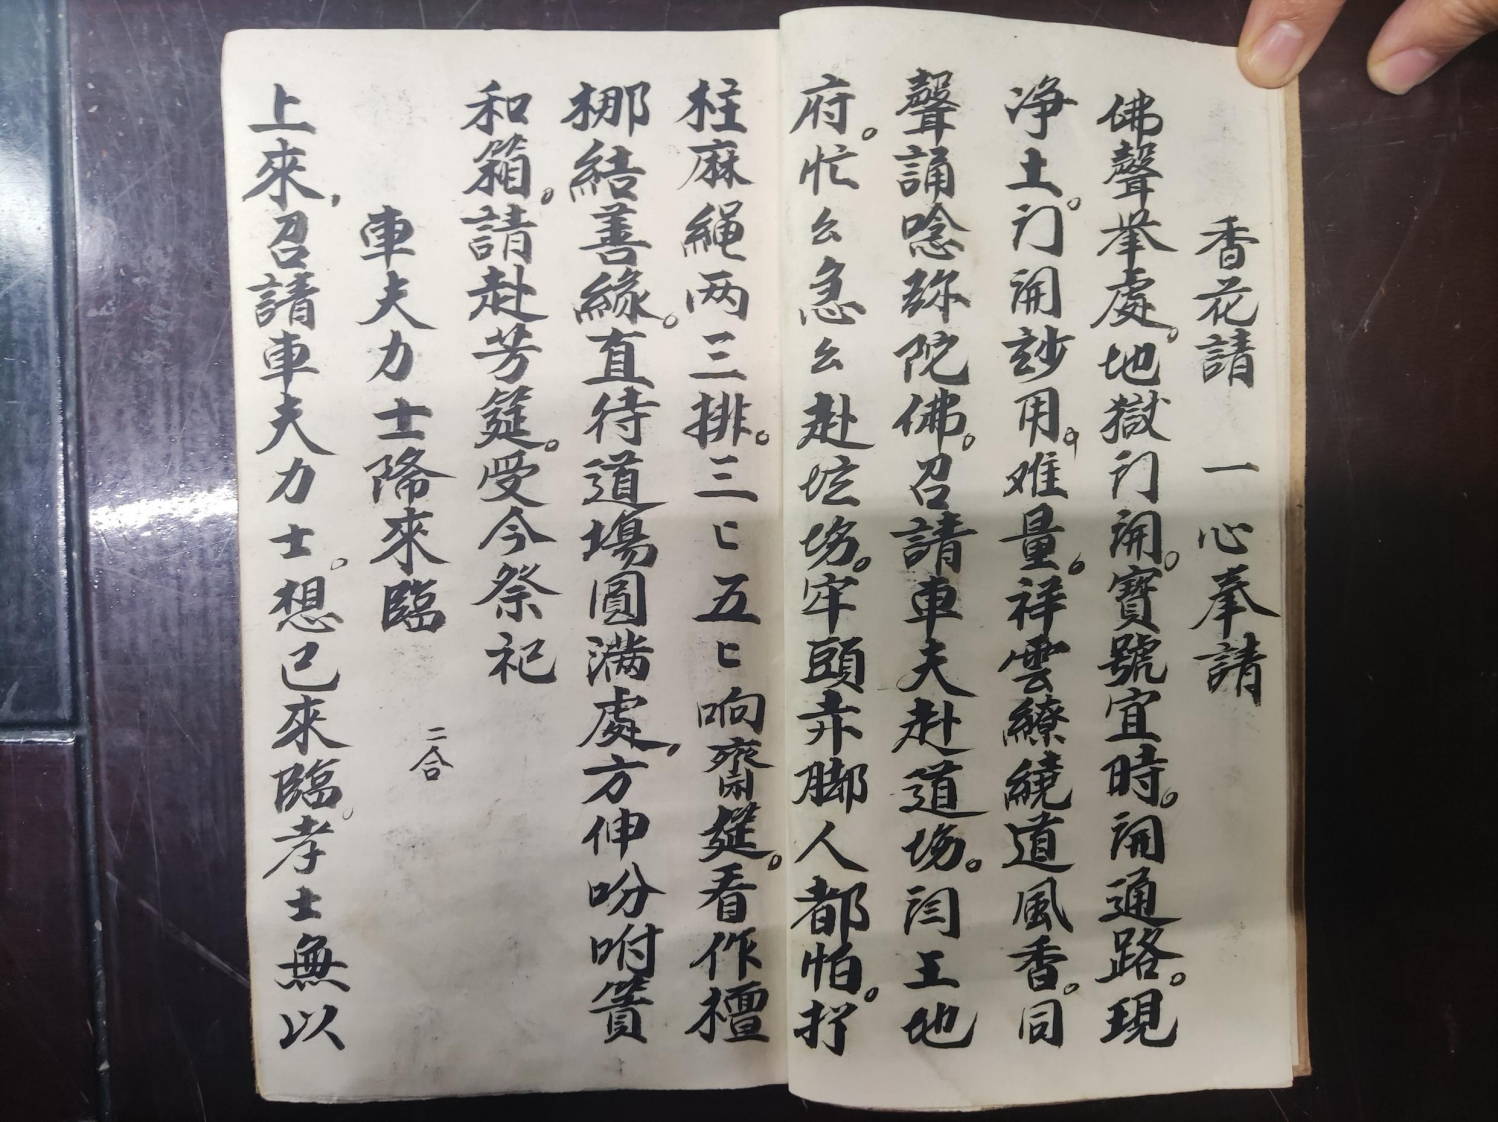 香花請　一心奉請
佛聲举處。地獄门開。寶號宣時。開通路。現
净土。门開妙用。难量。祥雲繚繞道風香。同
聲誦唸弥陀佛。召請車夫赴道场。闫王地
府。忙么急么赴坛场。牢頭弁脚人都怕。拧
柱麻绳两三排。三匕五匕响齋筵。看作檀
梛結善緣。直待道場圓满處，方伸吩咐簣
和箱。請赴芳筵。受今祭祀
車夫力士降來臨　二合
上來，召請車夫力士。想已來臨。孝士無以